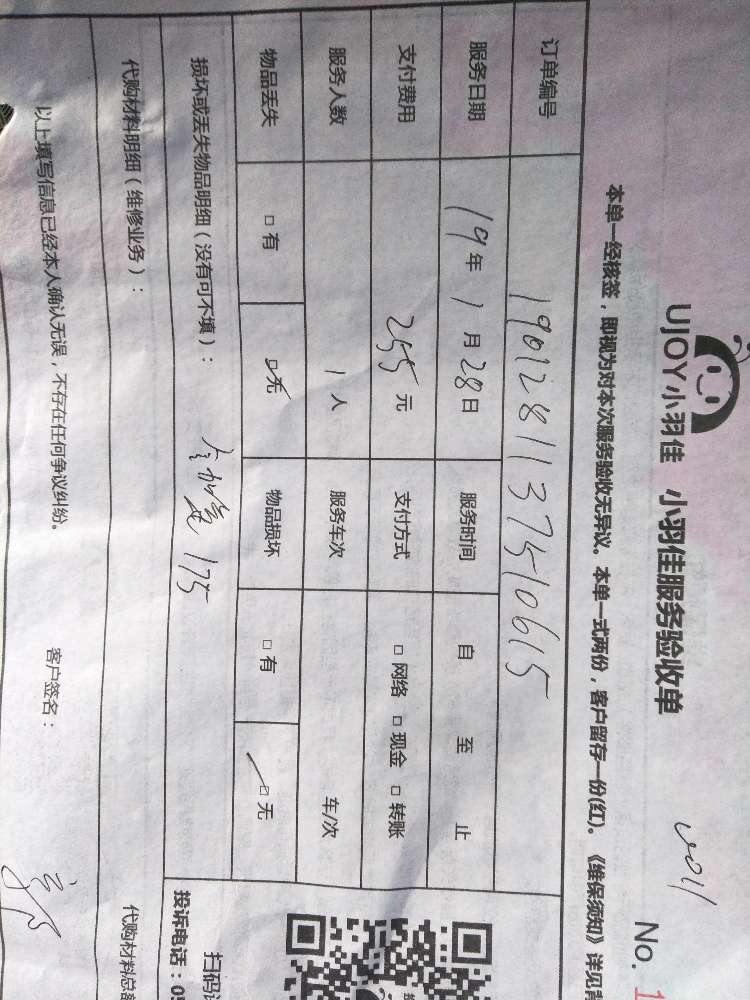 UJOY小羽佳 小羽佳服务验收单
No. 1
本单一经核签，即视为对本次服务验收无异议。本单一式两份，客户留存一份(红)。《维保须知》详见背
订单编号 1901281137510615
服务日期 19年1月28日 服务时间 自 至 止
支付费用 255元 支付方式 □ 网络 □ 现金 □ 转账
服务人数 1人 服务车次 车/次
物品丢失 □ 有 □ 无 物品损坏 □ 有 □ 无
损坏或丢失物品明细（没有可不填）：
175
代购材料明细（维修业务）： 代购材料总
以上填写信息已经本人确认无误，不存在任何争议纠纷。 客户签名：
扫码
投诉电话：05